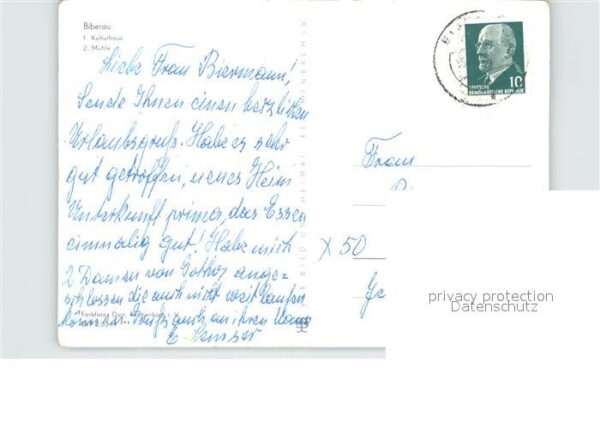 Biberau
1. Kulturhaus
2. Mühle
Liebe Frau Biermann!
Sende Ihnen einen herzlichen
Urlaubsgruß. Habe es sehr
gut getroffen, neues Heim
Unterkunft prima, das Essen
einmalig gut! Habe mich
2 Damen von Gotha ange-
schlossen die auch nicht weit laufen
auch an ihren
E.
BILD UND HEIMAT REICHENBACH i. V.
10
DEUTSCHE
DEMOKRATISCHE REPUBLIK
Frau
X 50
privacy protection
Datenschutz